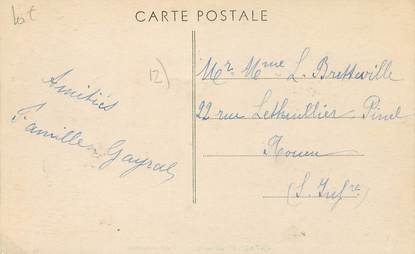 CARTE POSTALE
lot
12)
Amitiés
Famille Gayral
Mr. Mme L. Bretteville
22 rue Lethuillier Pinel
Rouen
(S. Infre)